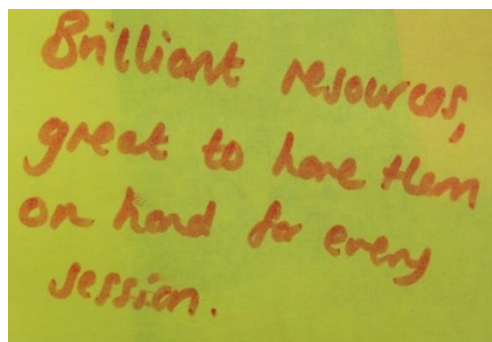 Brilliant resources,
great to have them
on hand for every
session.